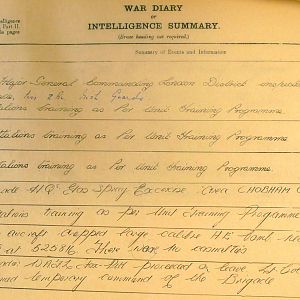 WAR DIARY
or
INTELLIGENCE SUMMARY.
(Erase heading not required.)
telligence
Part II.
le pages
Summary of Events and Information
Major-General Commanding London District inspected
2 Bn Irish Guards
tations training as per Unit Training Programme
tations training as per Unit Training Programme
tations training as per Unit Training Programme.
HQ. Gas Spray Exercise. Area CHOBHAM C
tations training as per Unit Training Programme
aircraft dropped large calibre H.E. bomb near
at 525816 There were no casualties
proceeded on leave
temporary command of the Brigade